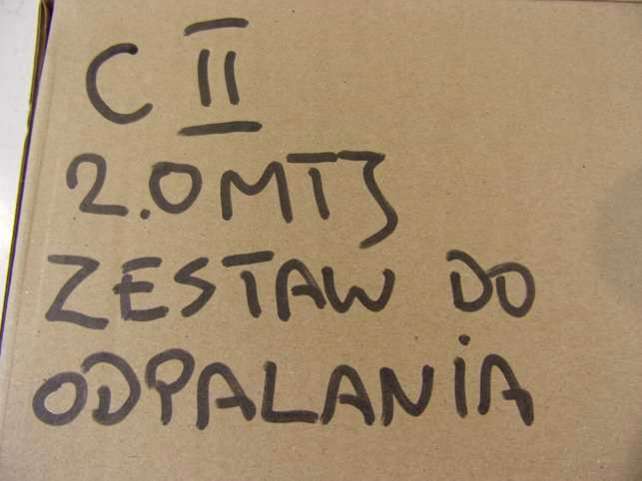 C II
2.0 MTJ
ZESTAW DO
ODPALANIA